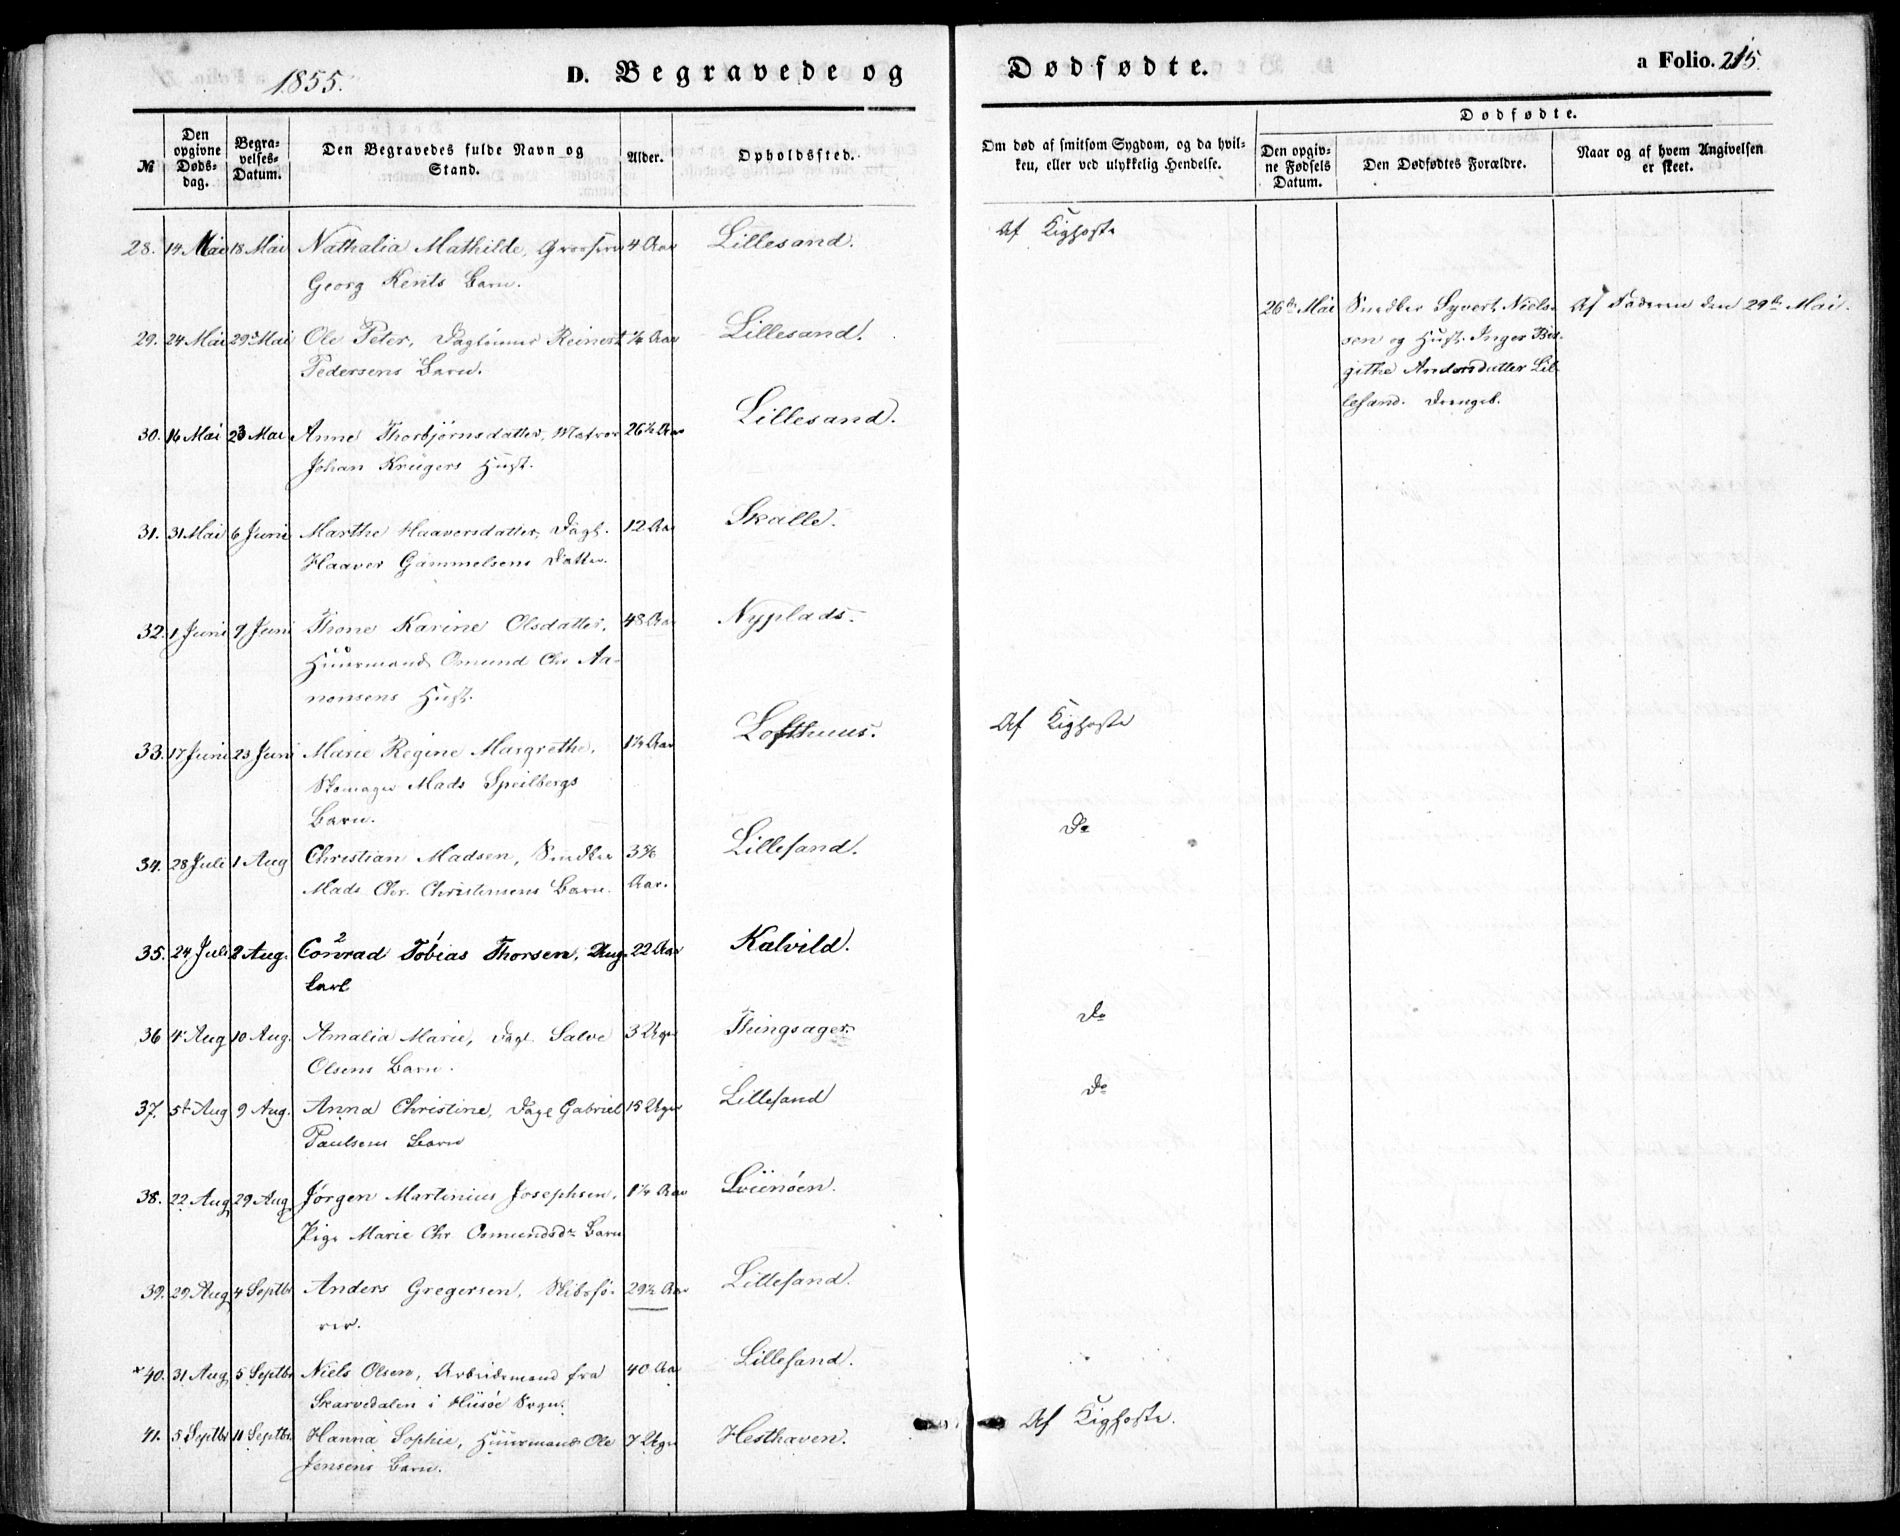 1855.
D. Begravede og
Dødfødte.
a Folio. 215.
№
Den opgivne Døds-dag.
Begra-velses-Datum.
Den Begravedes fulde Navn og Stand.
Alder.
Opholdssted.
Om død af smitsom Sygdom, og da hvil-
ken, eller ved ulykkelig Hendelse.
Dødfødte.
Den opgiv-ne Fødsels Datum.
Den Dødfødtes Forældre.
Naar og af hvem Angivelsen er skeet.
28. 14 Mai 18 Mai Nathalia Mathilde, 4 Aar Lillesand. Af Kighoste
Georg Kents Barn.
29. 24 Mai 29 Mai Ole Peter, Dagleinner Reinert Aar Lillesand.
Pedersens Barn.
26de Mai Snedker Syvert Niels- Af Faderen den 29de Mai.
sen og Hust. Inger Bir-
githe Andersdatter Lil-
lesand. Drengeb.
30. 16 Mai 23 Mai Anne Thorbjørnsdatter, Matros 26½ Aar Lillesand.
Johan Krügers Hust.
31. 31 Mai 6 Juni Marthe Haaversdatter, Dagl. 12 Aar Skalle.
Haaver Gammelsens Datter.
32. 1 Juni 9 Juni Thone Karine Olsdatter, 48 Aar Nyplads.
Huusmand Omund Chr Aa-
nonsens Hust.
33. 17 Juni 23 Juni Marie Regine Margrethe, Aar Lofthuus. Af Kighoste
Skomager Mads Speilbergs
Barn.
34. 28 Juli 1 Aug Christian Madsen, Snedker 3 5/6 Lillesand. Do
Mads Chr. Christensens Barn. Aar.
35. 24 Juli 2 Aug. Conrad Tobias Thorsen, Ung- 22 Aar Kalvild.
karl
36 4 Aug 10 Aug. Amalia Marie, Dagl. Salve 3 Uger Thingsager. Do
Olsens Barn.
37. 5t Aug 9 Aug. Anna Christine, Dagl Gabriel 15 Uger Lillesand Do
Paulsens Barn
38. 22 Aug 29 Aug Jørgen Martinius Josephsen, 1¼ Aar
Pige Marie Chr Osmundsdr Barn
39. 29 Aug 4 Septbr Anders Gregersen, Skibsfø- 29½ Aar Lillesand.
rer.
40. 31 Aug 5 Septbr Niels Olsen, Arbeidsmand fra 40 Aar Lillesand.
Skarvedalen i Hisøe Sogn.
41. 5 Septbr 11 Septbr. Hanna Sophie, Huusmand Ole 7 Uger Hesthaven. Af Kighoste.
Jensens Barn.